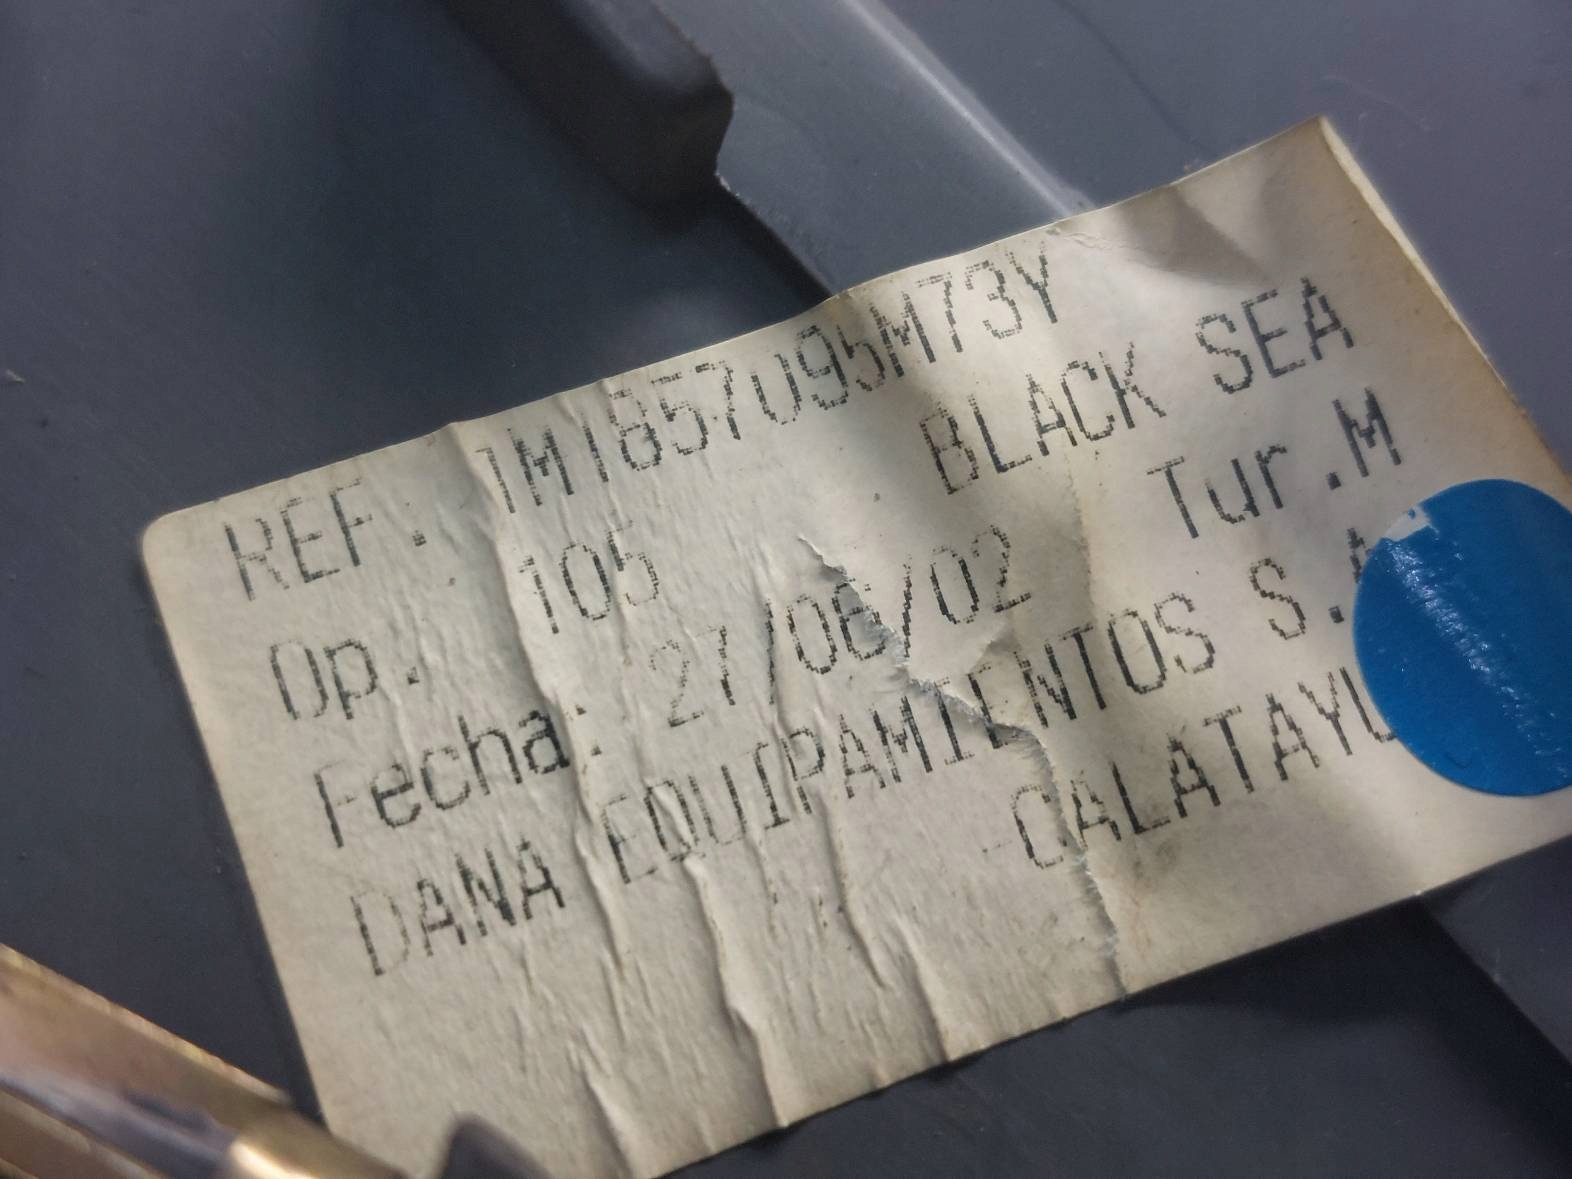 REF: 1M1857095M73Y
BLACK SEA
Op. 105 Tur.M
Fecha: 27/06/02
DANA EQUIPAMIENTOS S.A
-CALATAYU